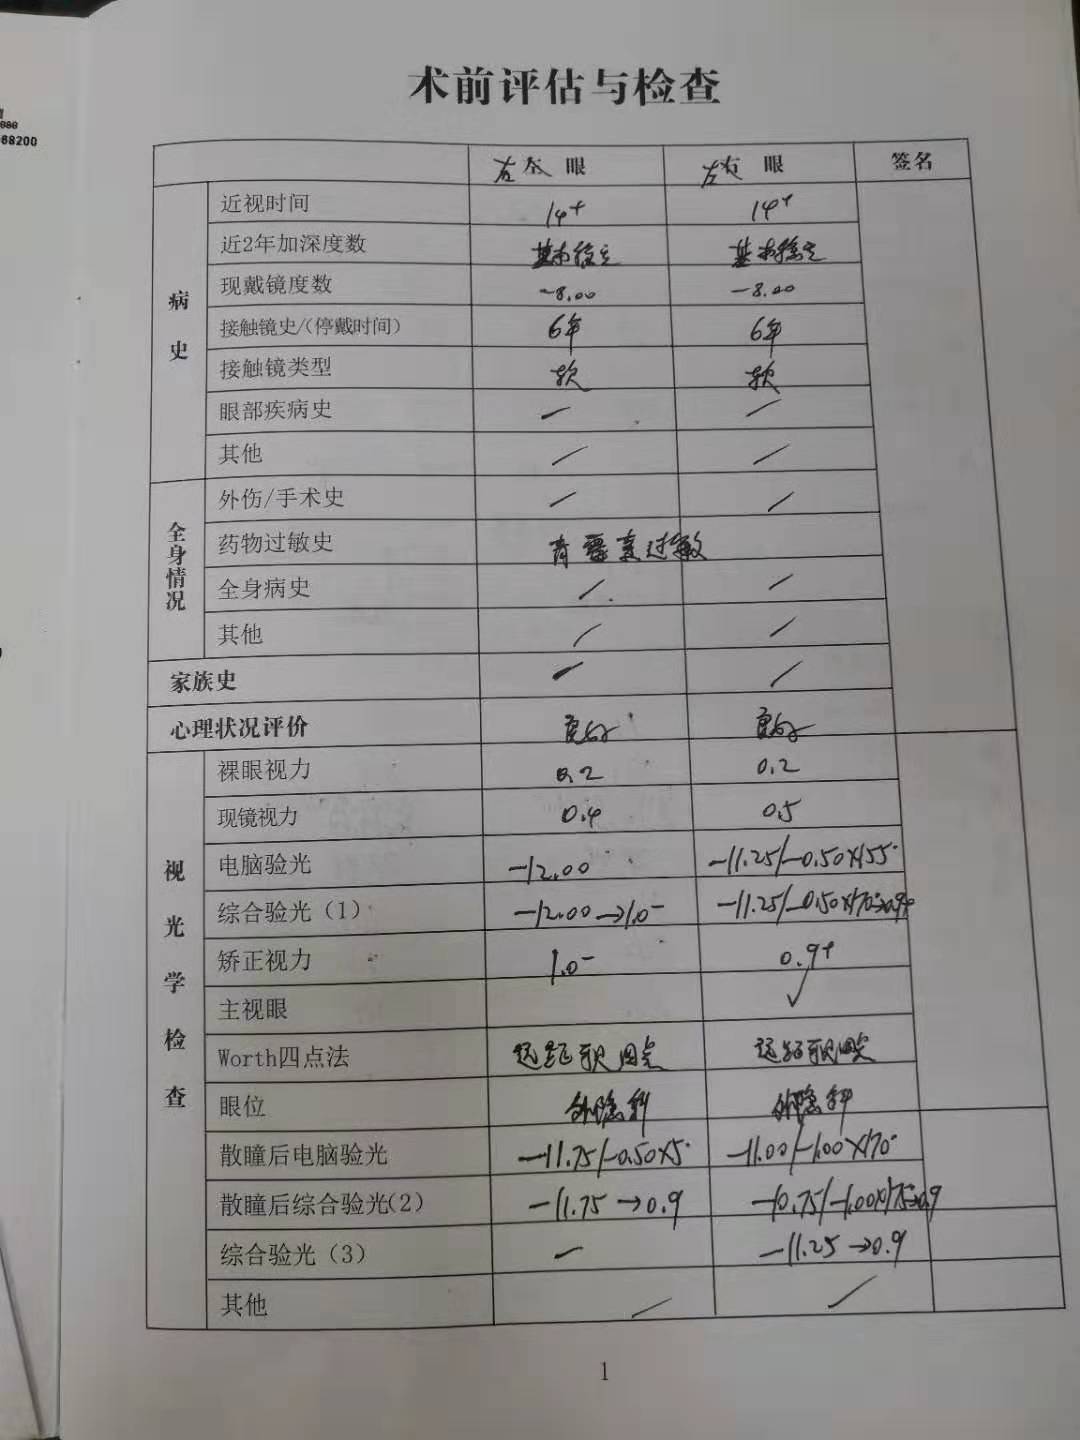 888
68200
术前评估与检查
右眼 左眼 签名
病史
近视时间 14+ 14+
近2年加深度数 基本稳定 基本稳定
现戴镜度数 -8.00 -8.00
接触镜史/(停戴时间) 6年 6年
接触镜类型 软 软
眼部疾病史 — /
其他 / /
全身情况
外伤/手术史 / /
药物过敏史 青霉素过敏
全身病史 / /
其他 / /
家族史 / /
心理状况评价 良好 良好
视光学检查
裸眼视力 0.2 0.2
现镜视力 0.4 0.5
电脑验光 -12.00 -11.25/-0.50×155°
综合验光（1） -12.00→1.0- -11.25/-0.50×170°→0.9+
矫正视力 1.0- 0.9+
主视眼 √
Worth四点法 远距融四点 远距融四点
眼位 外隐斜 外隐斜
散瞳后电脑验光 -11.75/-0.50×5° -11.00/-1.00×170°
散瞳后综合验光(2) -11.75→0.9 -10.75/-1.00×175→0.9
综合验光（3） — -11.25→0.9
其他 / /
1